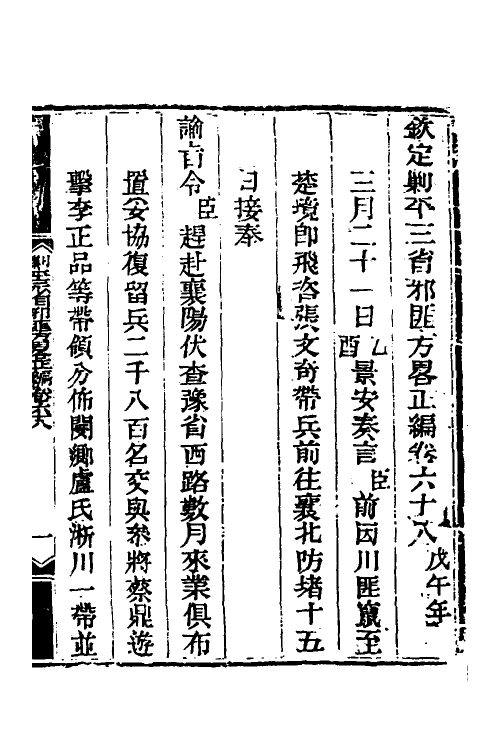 欽定剿平三省邪匪方畧正編卷六十八戊午年
三月二十一日乙酉景安奏言臣前因川匪竄至
楚境即飛咨張文奇帶兵前往襄北防堵十五
日接奉
諭旨令臣趕赴襄陽伏查豫省西路數月來業俱布
置妥協復留兵二千八百名交與叅將蔡鼎遊
擊李正品等帶領分佈閿鄉盧氏淅川一帶並
剿平三省邪匪方畧正編卷六十八
一